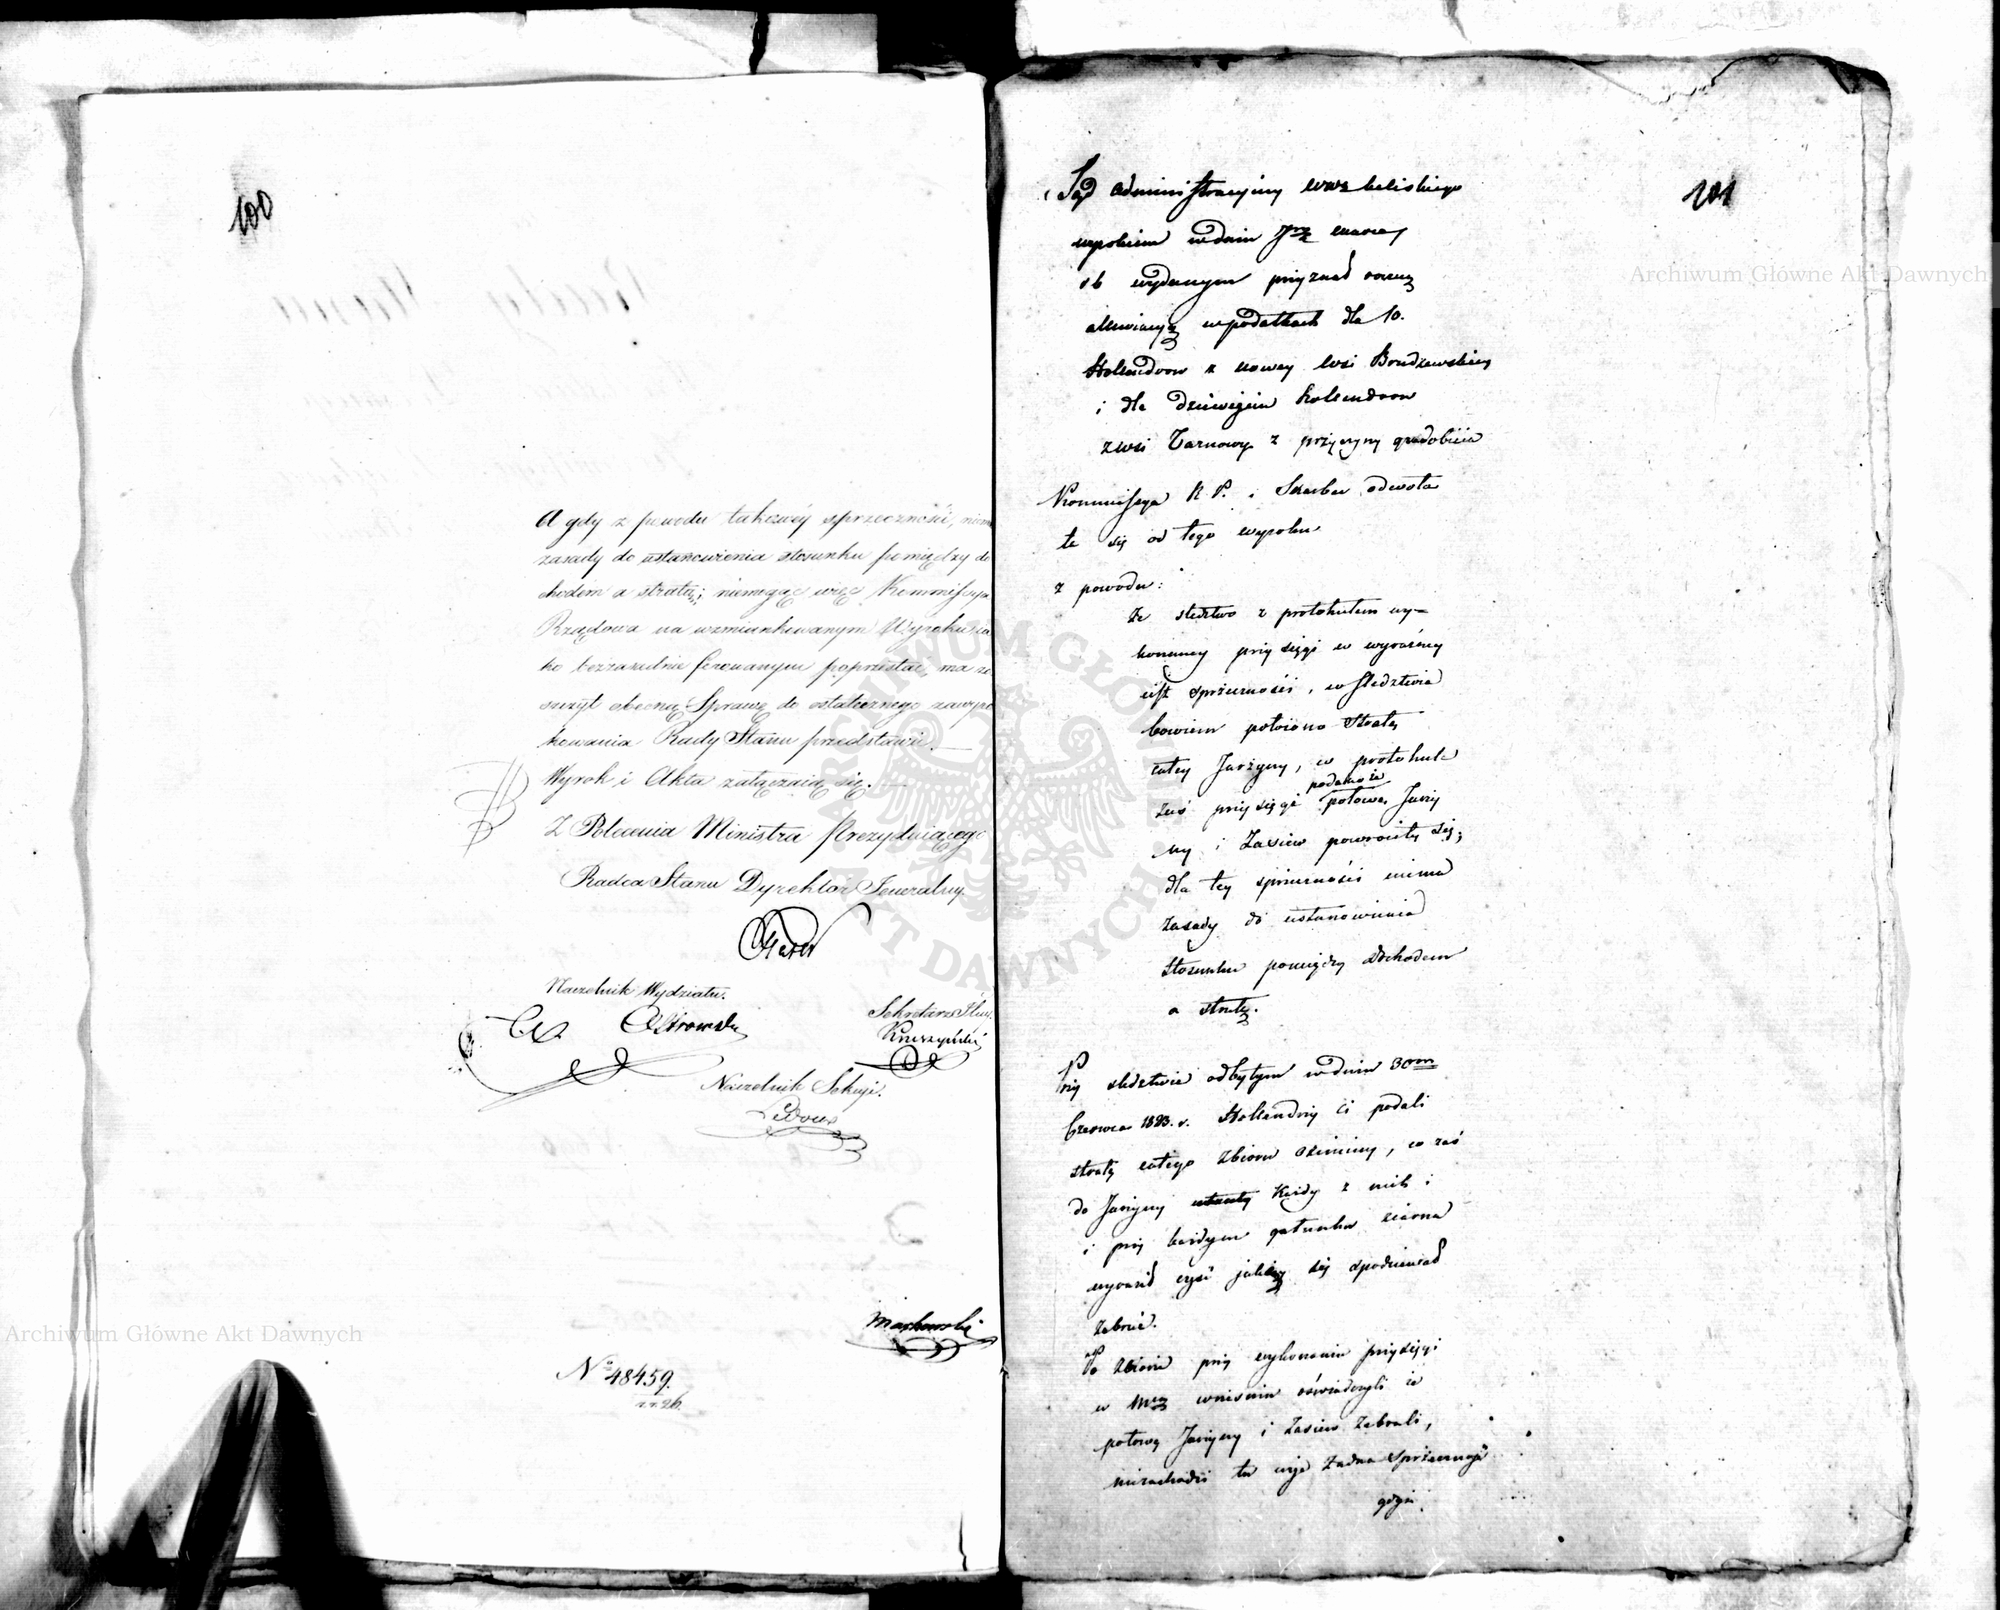 100
A gdy z powodu takowéy sprzeczności, niema
zasady do ustanowienia stosunku pomiędzy do
chodem a stratą; niemogąc więc Kommissya
Rządowa na wzmiankowanym Wyroku ja
ko bezzasadnie ferowanym poprzestać, ma za
szczyt obecną Sprawę do ostatecznego zawyro
kowania Rady Stanu przedstawić.
Wyrok i Akta załączaią się.
Z Polecenia Ministra Prezyduiącego
Radca Stanu Dyrektor Jeneralny
Naczelnik Wydziału.
Ostrowski
Sekretarz Jlny.
Kruszyński
Naczelnik Sekcyi.
Markowski
No 48459.
101
Sąd administracyiny wwa kaliskiego
wyrokiem w dniu marca
rb wydanym przyznał
allewiacyą w podatkach dla 10.
Hollendrow z nowey wsi
i dla dziewięciu holendrow
z wsi Tarnowy z przyczyny gradobicia
Kommissya R. P. i Skarbu odwoła
ła się od tego wyroku
z powodu:
że śledztwo z protokułem wy=
konaney przysięgi w wyraźney
iest sprzeczności, w śledztwie
bowiem położono stratę
całey Jarzyny, w protokule
zaś przysięgi podano że połowa Jarzy
ny i zasiew powróciły się;
dla tey sprzeczności niema
zasady do ustanowienia
stosunku pomiędzy dochodem
a stratą.
Przy śledztwie odbytym w dniu 30
Czerwca 1823. r. Hollendrzy ci podali
stratę całego zbioru oziminy, co zaś
do Jarzyny każdy z nich i
i przy każdym gatunku ziarna
wyraził część jakiey się spodziewał
zebrać.
Po zbiorze przy wykonaniu przysięgi
w wrześniu oświadczyli że
połowę Jarzyny i zasiew zebrali,
niezachodzi tu więc żadna sprzeczność
gdyż
Archiwum Główne Akt Dawnych
Archiwum Główne Akt Dawnych
ARCHIWUM GŁÓWNE AKT DAWNYCH